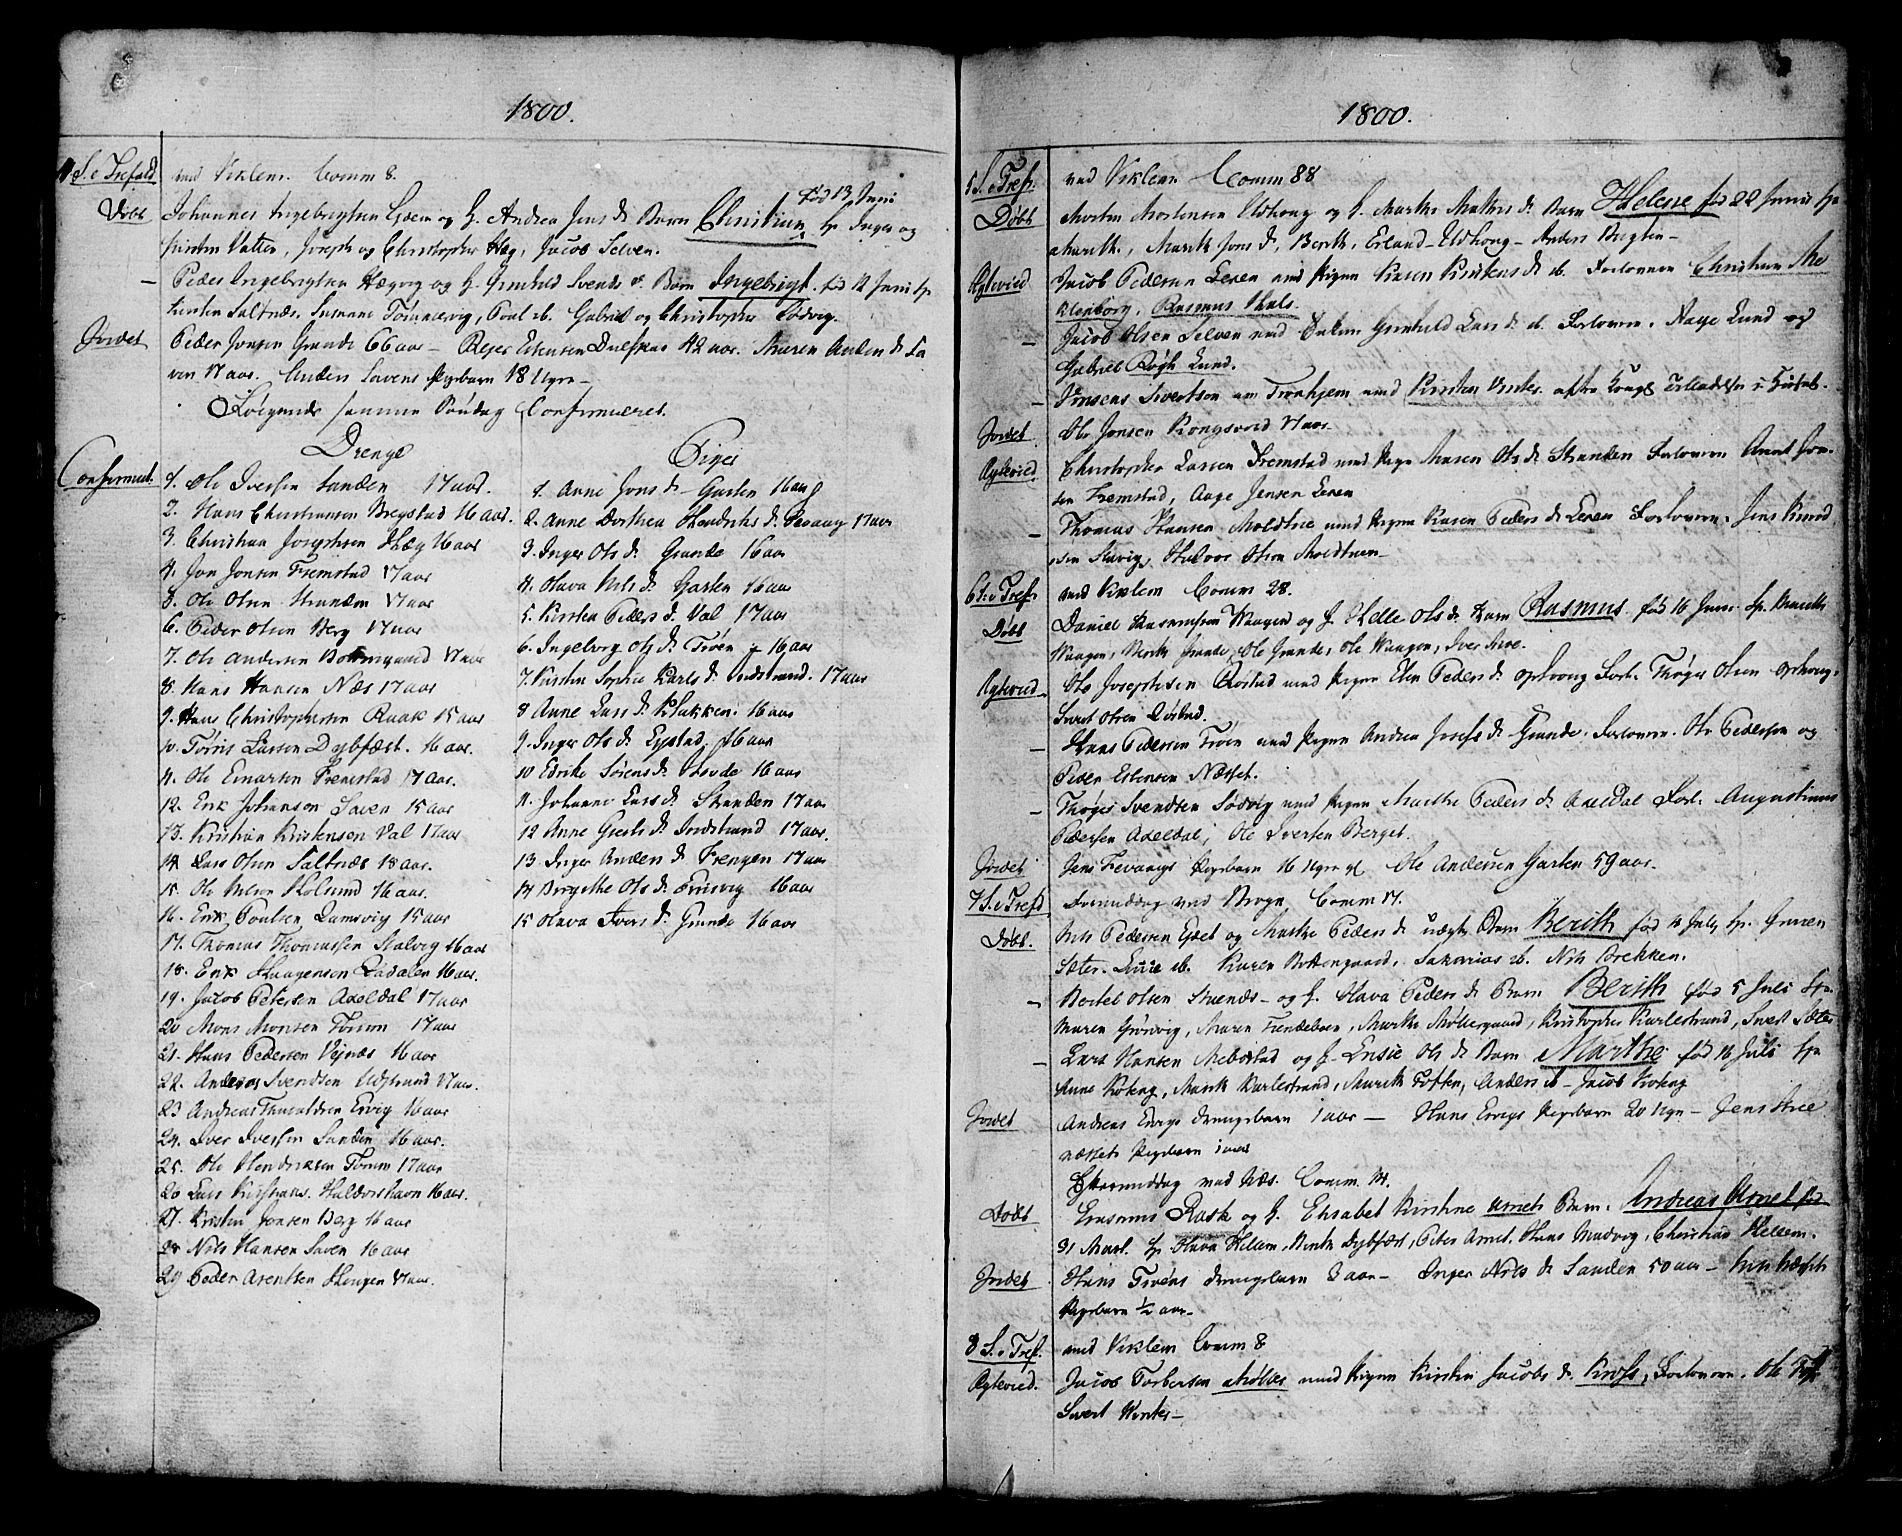 1800.
4 S. e Trefold. ved Viklem. Comm 8.
fød 13 Juni
Døbt Johannes Ingebrigtsen og H. Andrea Jens d. Barn Christian, fp Inger og
Kirsten Vatten, Joseph og Christopher Hæg, Jacob Selven.
– Peder Ingebrigtsen Hægvig og H. Gunhild Svends d. Barn Ingebrigt. fød 12 Juni fp
Kirsten Saltnæs, Susanne, Poul ib. Gabriel og Christopher Lødvig.
Jordet Peder Jonsen Grande 66 aar – Estensen 42 aar. Maren Anders d.
ven 17 aar. Anders Savens Pigebarn 18 Uger –
Følgende samme Søndag Confirmeret.
Drenge
Piger
Confirmeret.
1. Ole Iversen Sanden 17 aar.
2. Hans Christiansen Bregstad 16 aar.
3. Christian Josephsen Hæg 16 aar
4. Jon Jonsen Fremstad 17 aar
5. Ole Olsen Stranden 17 aar
6. Peder Olsen Berg 17 aar
7. Ole Andersen Bottengaard 17 aar
8. Hans Hansen Næs 17 aar
9. Hans Christophersen Raak 15 aar
10. Tørris Larsen Dybfæst. 16 aar.
11. Ole Einarsen Fremstad 17 aar.
12. Erik Johansen Saven 15 aar
13. Kristian Kristensen Val 17 aar
14. Lars Olsen Saltnæs 18 aar.
15. Ole Nelsen Hoksund 16 aar.
16. Erik Poulsen Ramsvig 15 aar
17. Thomas Thomassen Stalvig 16 aar
18. Erik Haagensen Lædalen 16 aar.
19. Jacob Petersen Axeldal 17 aar
20 Mons Monsen Torum 17 aar
21. Hans Pedersen Vejnæs 16 aar
22. Andreas Svendsen Udstrand 17 aar.
23 Andreas Thoraldsen Ervig 16 aar
24. Iver Iversen Sanden 16 aar.
25. Ole Hendriksen Torum 17 aar
26 Lars Kristians. Haldorshavn 16 aar.
27. Kristen Jonsen Berg 16 aar
28 Nils Hansen Saven 16 aar
29 Peder Arentsen Hougen 17 aar.
1. Anne Jons d – Garten 16 aar
2. Anne Dorthea Hendriks d. Fevaag 17 aar
3. Inger Ols d. Grande 16 aar
4. Olava Nils d. Garten 16 aar
5. Kirsten Peders d. Val 17 aar
6. Ingeborg Ols d. Troen 16 aar
7. Kirsten Sophia Karls d. Indstrand. 17 aar
8 Anne Lars d. Klakken. 16 aar
9. Inger Ols d. Eystad 16 aar
10 Edrike Sørens d. Hovde 16 aar
11. Johanne Lars d. Stranden 17 aar
12 Anne Gierts d. Indstrand 17 aar.
13. Inger Anders d. Frengen 17 aar
14 Birgithe Ols d. Frisvig 16 aar
15 Olava Ivers d. Grande 16 aar
1800.
5 S. e Tref. ved Viklem Comm 88
Døbt Morten Mortensen Udhoug og H. Marthe Mathis d. Barn Helene fød 22 Junii fp
Marith, Marith Jons d. Berith, Erland Udhoug – Anders Bugten –
Egtevied Jacob Pedersen Leren med Pigen Karen Kristens d. ib. Forlovere Christian
Klenborg, Rasmus Hals.
– Jacob Olsen Selven med Enken Gunhild Lars d. ib. Forlovere. Aage Lund og
Gabriel Røgh Lund.
– Sivertsen am Tronhjem med Kirsten Winter. efter Kongl Tilladelse i Huset.
Jordet Ole Jonsen Kongsvold 17 aar –
Egtevied. Christopher Larsen Fremstad med Pigen Maren Ols d. Stranden Forlovere Arent Jon-
sen Fremstad, Aage Jensen Leren
– Thomas Hansen Moldtue med Pigen Karen Peders d. Leren Forlovere. Jens Knud
sen Stavig, Halvor Olsen Moldtuen –
6 S. e Tref. ved Viklem Comm 28.
Døbt Daniel Rasmussen Waagen og H. Helle Ols d. Barn Rasmus fød 16 Juni. fp. Marith
Waagen, Marith Grande, Ole Grande, Ole Waagen, Iver Aune.
Egtevied Ole Josephsen Rostad med Pigen Elen Peders d. Ophoug Forl. Thøger Olsen Ophoug,
Sivert Olsen Røstad.
– Hans Pedersen Troen med Pigen Andrea Josefs d. Grande. Forlovere. Ole Pedersen og
Peder Estensen Næsset.
– Thøger Svendsen Lødvig med Pigen Marthe Peders d. Axeldal Forl. Augustinus
Pedersen Axeldal, Ole Sversen Berget.
Jordet Jens Fevaags Pigebarn 16 Uger gl Ole Andersen Garten 59 aar.
7 S. e Trefd Formiddag ved Brogn Comm 17.
Døbt. Nils Pedersen og Marthe Peders d. uægte Barn Berith fød 4 Juli fp. Gunnen
Sæter. ib. Karen Bottengaard, Sakarias ib. Nils Brekken.
– Bortel Olsen – og H. Olava Peders d. Barn Berith fød 5 Juli fp.
Maren Grønvig, Maren, Marthe Møllegaard, Kristopher Karlestrand, Sivert Sæter
– Lars Hansen Mebostad og H. Ols d. Barn Marthe fød 16 Juli fp
Anne Koteng, Marith Karlestrand, Marith Toften, Anders ib – Jacob Koteng
Jordet Andreas Ervigs drengebarn 1 aar – Hans Ervigs Pigebarn 20 Uger – Jens
næssets Pigebarn 1 aar
Eftermiddag ved Næs. Comm 14.
Døbt Erasmus Rask og H. Elisabet Kirstine Arnet Barn. Andreas Arnet fød
31 Mart. fp Olava Hellem, Berith Dybfæst, Peter Arnet, Hans Madvig, Christian Hellem.
Jordet Hans Troens drengebarn 3 aar – Inger Nils d. Sanden 50 aar – Nils
Pigebarn ½ aar –
8 S. e Tref. ved Viklem Comm 8
Egtevied. Jacob Torbersen med Pigen Kirstin Jacobs d. Forlovere. Ole
Sivert Winter –